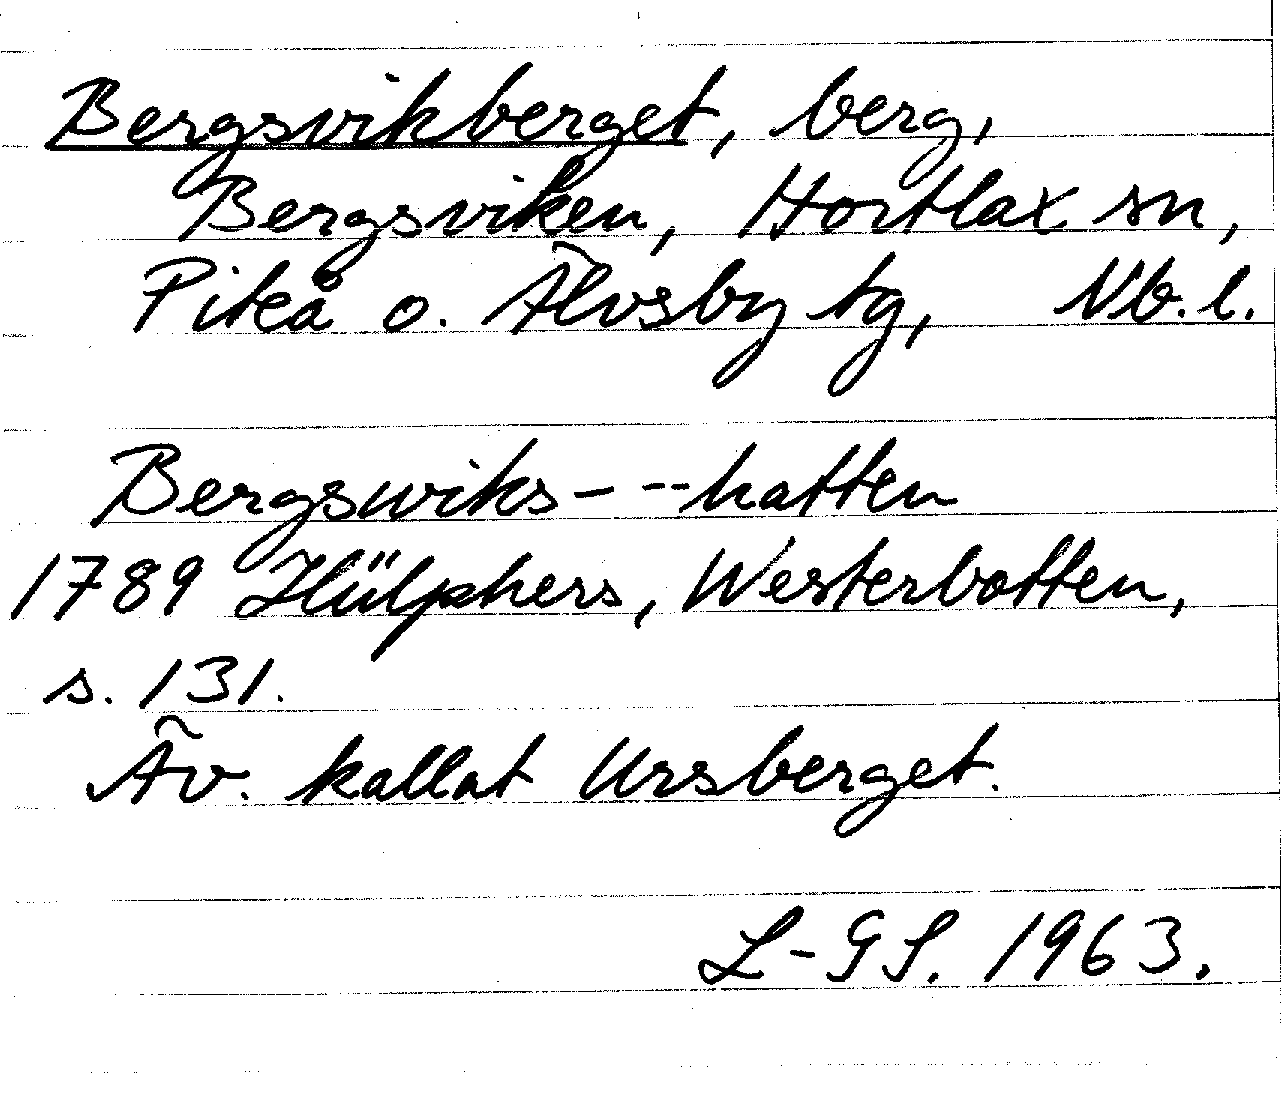 Bergsvikberget, berg,
Bergsviken, Hortlax sn,
Piteå o. Älvsby tg, Nb. l.
Bergswiks- --hatten
1789 Hülphers, Westerbotten,
s. 131.
Äv. kallat Ursberget.
L-GS. 1963.